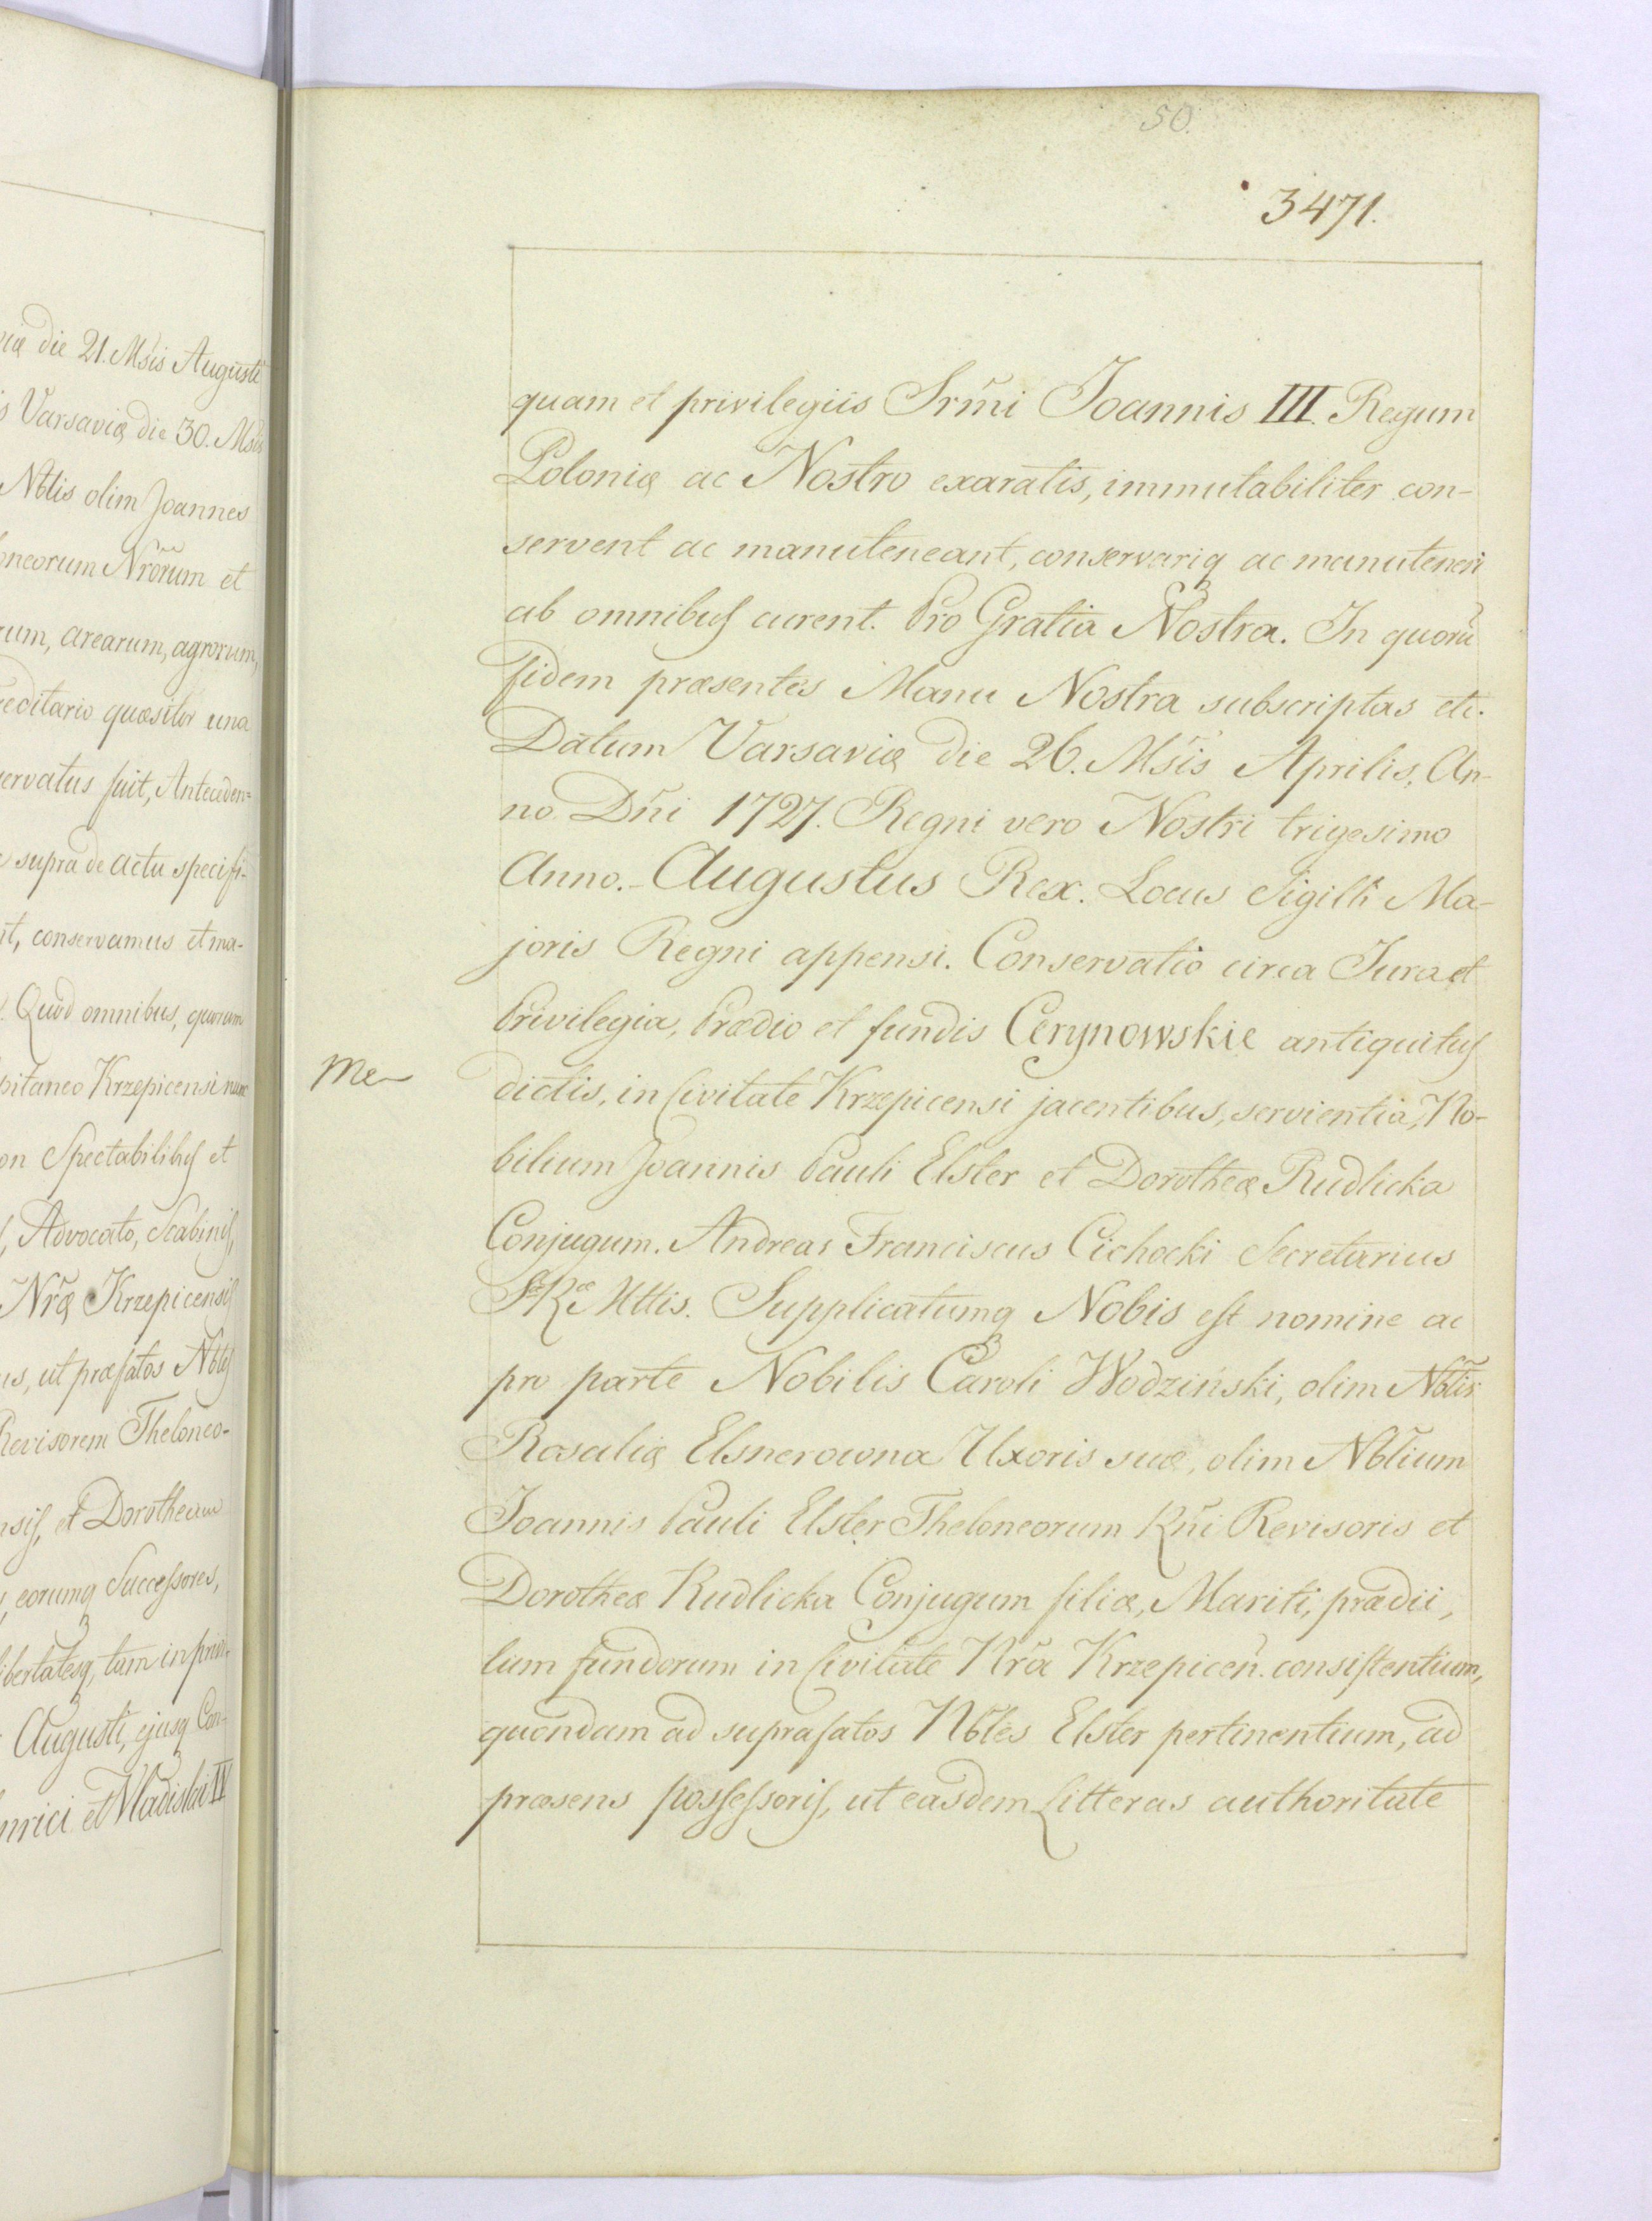 næ die 21. Msis Augusti
s Varsaviæ die 30. Msis
Nblis olim Joannes
oneorum Nrõrum et
rum, arearum, agrorum,
reditario quæsitor una
servatus fuit, Anteceden=
supra de actu specifi-
nt, conservamus et ma-
Quod omnibus, quorum
pitaneo Krzepicensi nunc
on Spectabilibus et
Advocato, Scabinis,
Nrã Krzepicensis
us, ut præfatos Nbles
Revisorem Theloneo-
nsis, et Dorotheam
eorumq Successores,
libertatesq, tam in privi-
Augusti, ejusq Con-
nrici et Vladislai IV
50.
3471.
quam et privilegiis Srm̃i Joannis III. Regum
Poloniæ ac Nostro exaratis, immutabiliter con-
servent ac manuteneant, conservariq ac manuteneri
ab omnibus curent. Pro Gratia Nostra. In quorũ
fidem præsentes Manu Nostra subscriptas etc.
Datum Varsaviæ die 26. Msis Aprilis, An-
no Dñi 1727. Regni vero Nostri trigesimo
Anno.- Augustus Rex. Locus Sigilli Ma-
joris Regni appensi. Conservatio circa Jura et
Privilegia, Prædio et fundis Cerynowskie antiquitus
me dictis, in Civitate Krzepicensi jacentibus, servientia, No-
bilium Joannis Pauli Elster et Dorotheæ Rudlicka
Conjugum. Andreas Franciscus Cichocki Secretarius
SRæ Mttis. Supplicatumq Nobis est nomine ac
pro parte Nobilis Caroli Wodziński, olim Nblis
Rosaliæ Elsnerowna Uxoris suæ, olim Nblium
Joannis Pauli Elster Theloneorum Rñi Revisoris et
Dorotheæ Rudlicka Conjugum filiæ, Mariti, prædii,
tum fundorum in Civitate Nrã Krzepiceñ. consistentium,
quondam ad suprafatos Nbles Elster pertinentium, ad
præsens possessoris, ut easdem Litteras authoritate